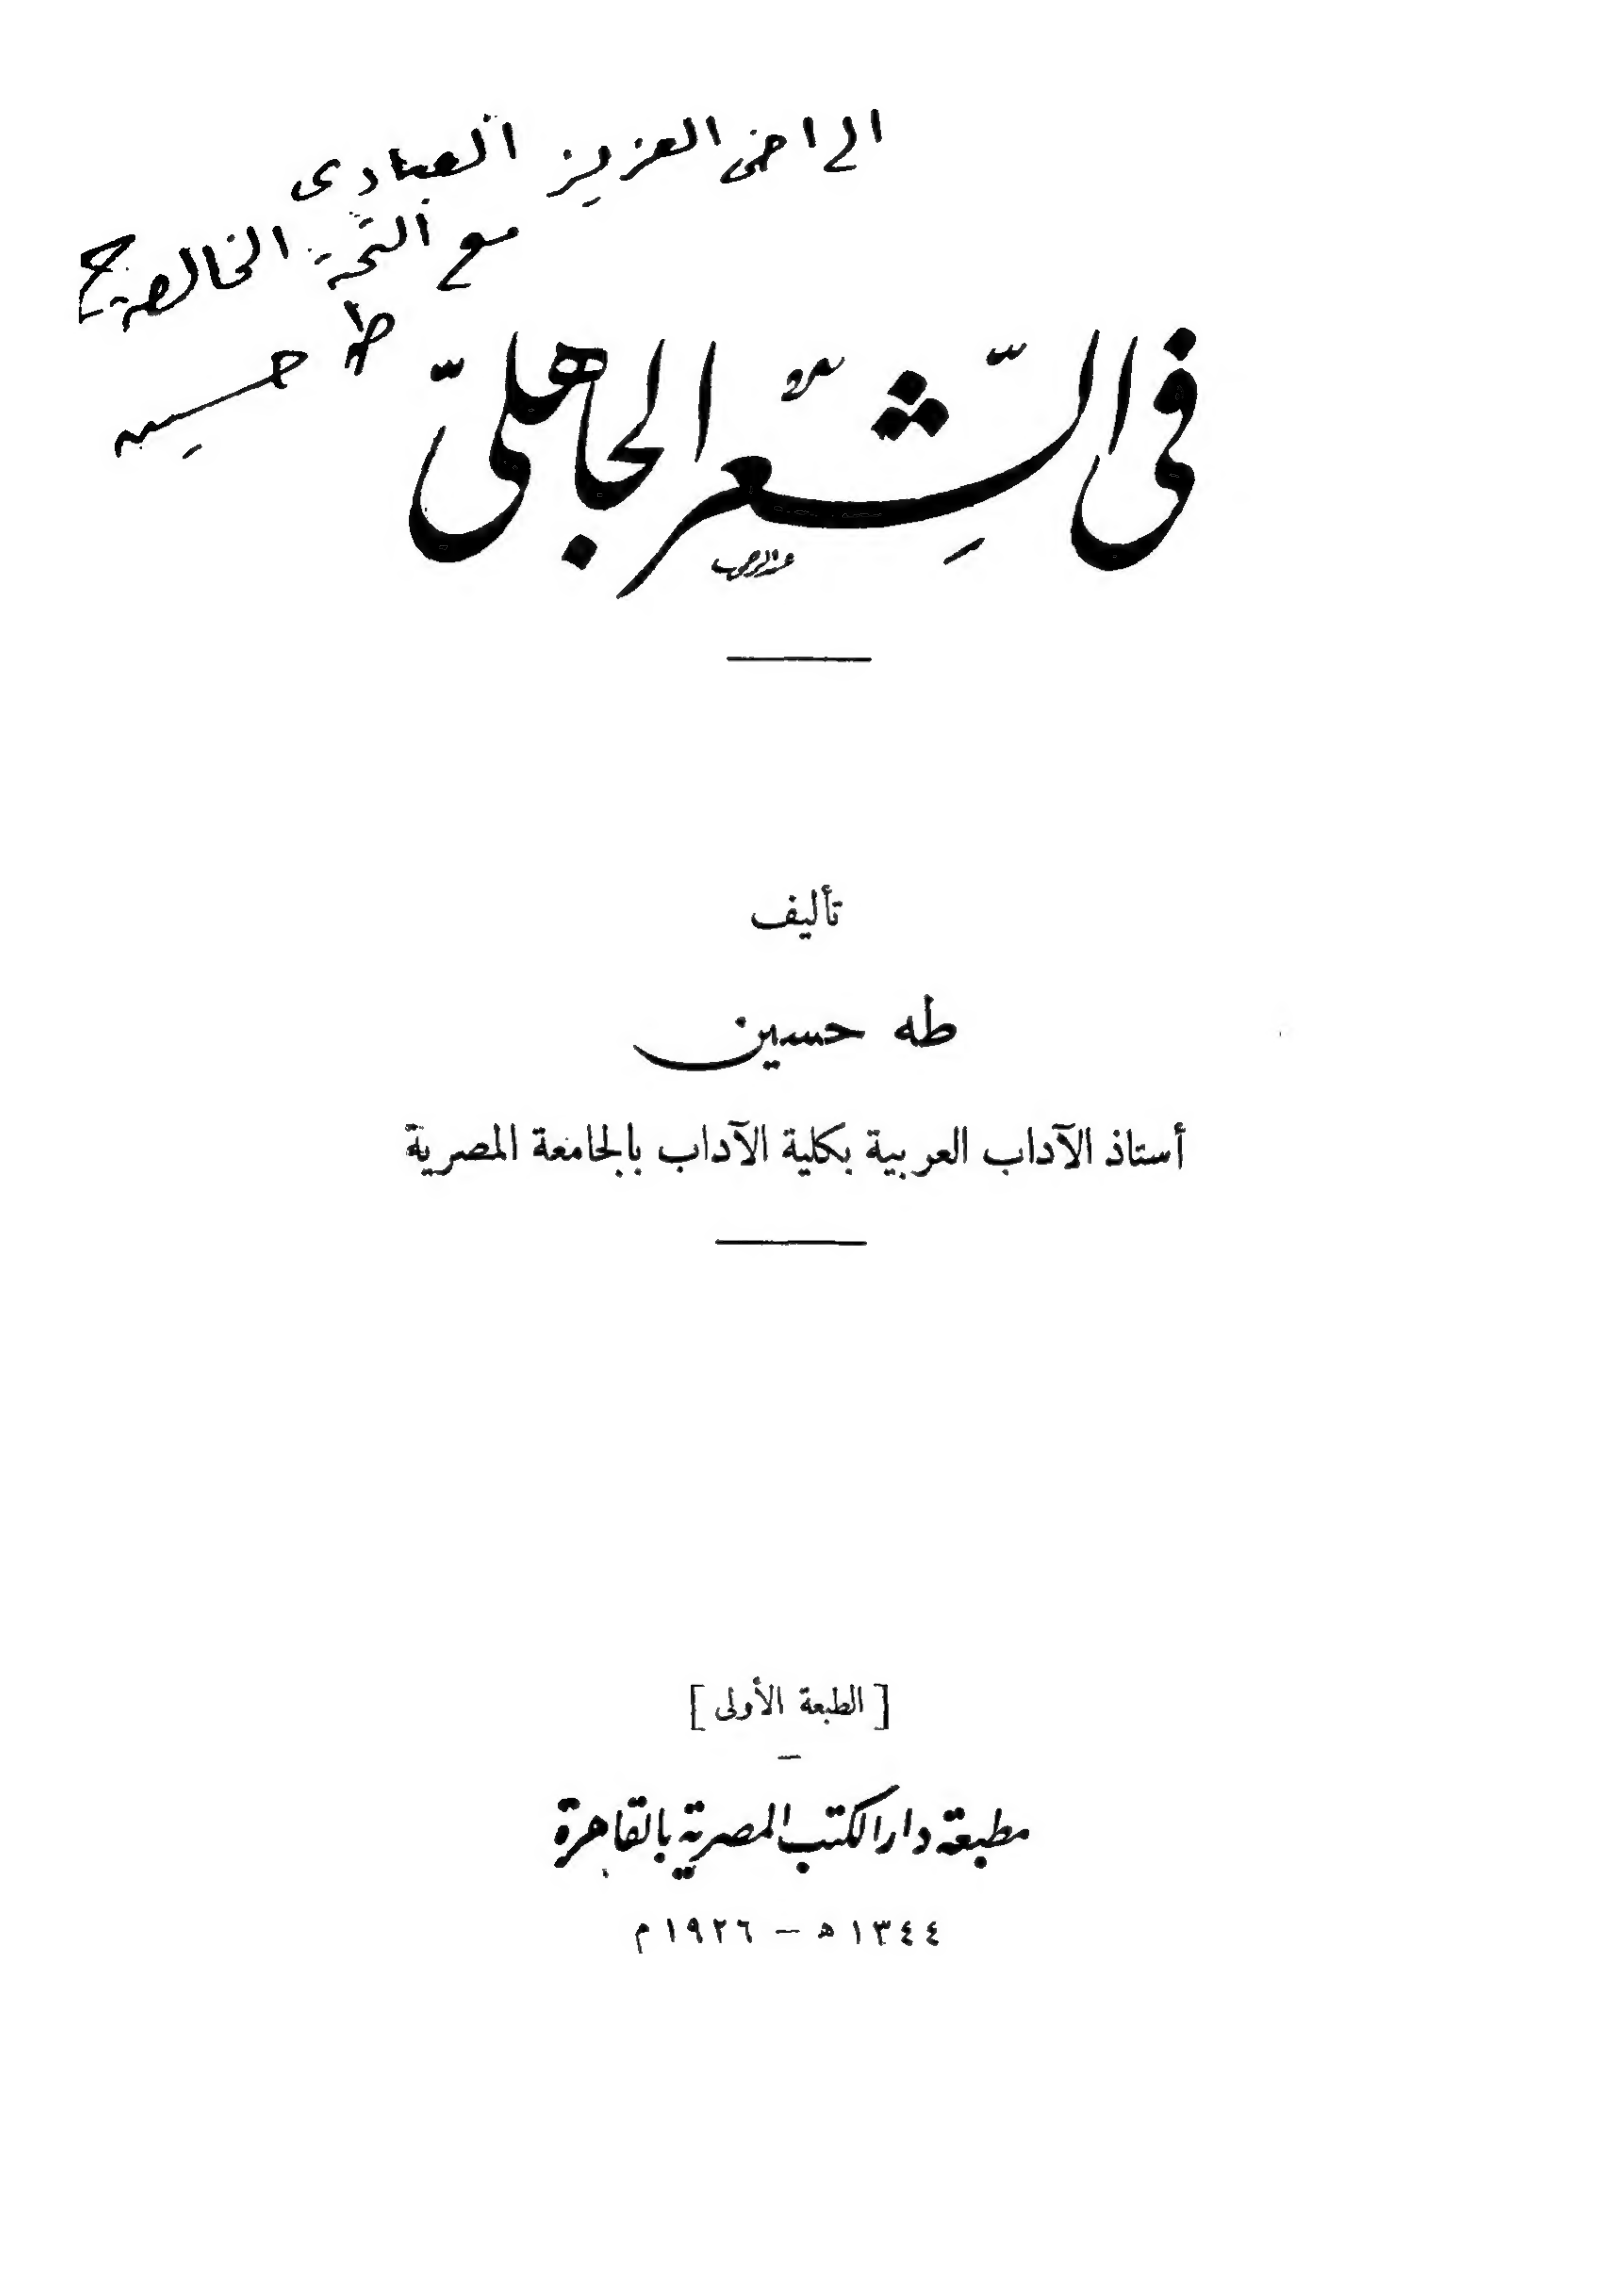 الى اخى العزيز العبادى
مع التحية الخالصة
طه حسين
فى الشِّعْر الجاهلىّ
تأليف
طه حسين
أستاذ الآداب العربية بكلية الآداب بالجامعة المصرية
[ الطبعة الأولى ]
مطبعة دار الكتب المصرية بالقاهرة
١٣٤٤ ه – ١٩٢٦ م